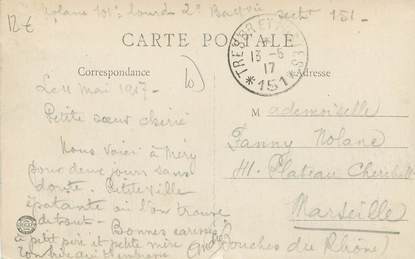 12€
Nolane 101e lourde 2e Batterie sect 151.
CARTE POSTALE
TRESOR ET POSTES
13-6
17
*151*
Correspondance
Adresse
10
Le 11 mai 1917.
Petite sœur chérie
Nous voici à Méry
pour deux jours sans
doute. Petite ville
épatante où l'on trouve
de tout. Bonnes caresses
à petit père et petite mère
ton frère qui t'embrasse
Mademoiselle
Fanny Nolane
Plateau
Marseille
(Bouches du Rhône)